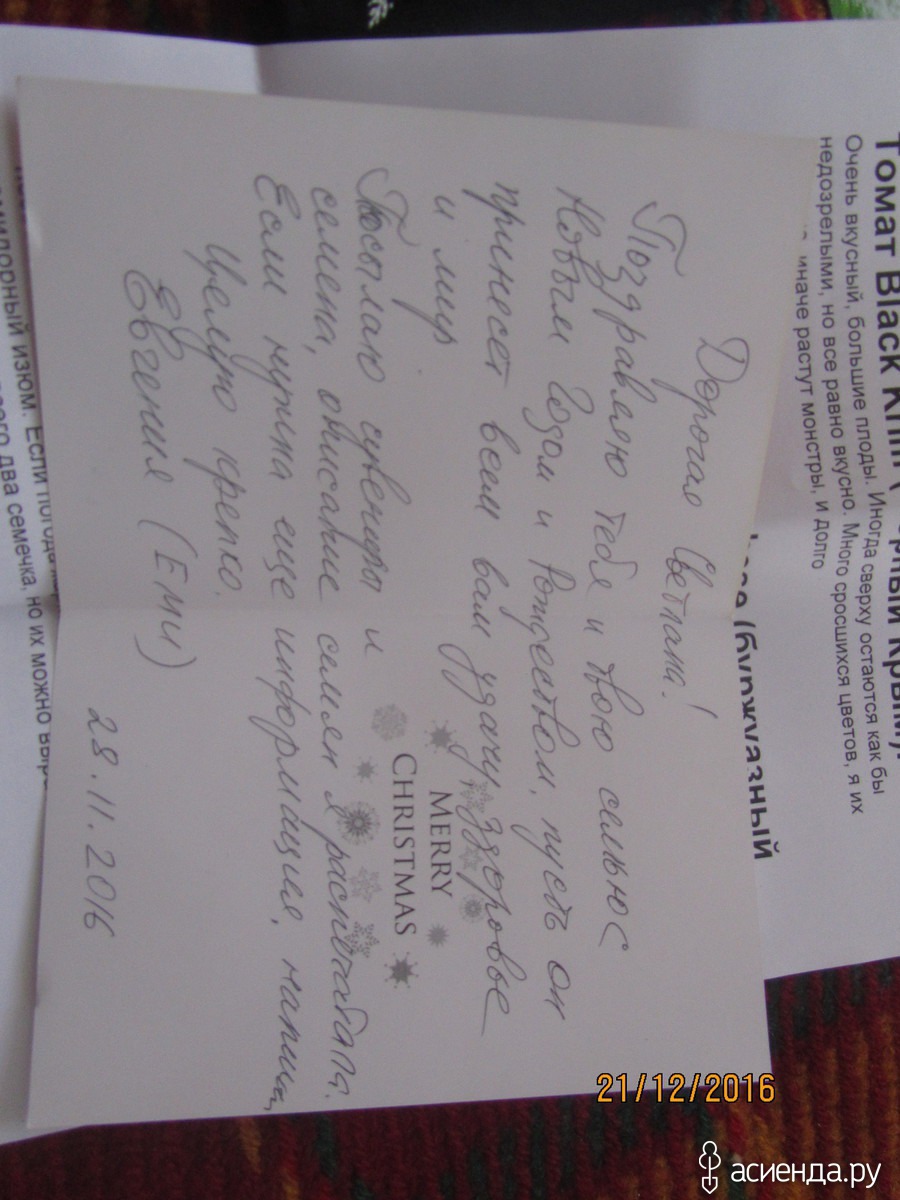 Дорогая Светлана!
Поздравляю тебя и твою семью с
Новым Годом и Рождеством, пусть он
принесет всем вам удачу, здоровье
и мир.
Посылаю сувениры и
семена, описание семян я распечатала.
Если нужна еще информация, напиши,
Целую крепко.
Евгения (Еми)
28.11.2016
MERRY
CHRISTMAS
Томат Black
Очень вкусный, большие плоды. Иногда сверху остаются как бы
недозрелыми, но все равно вкусно. Много сросшихся цветов, я их
иначе растут монстры, и долго
(буржуазный
изюм. Если
два семечка, но их можно
21/12/2016
асиенда.ру